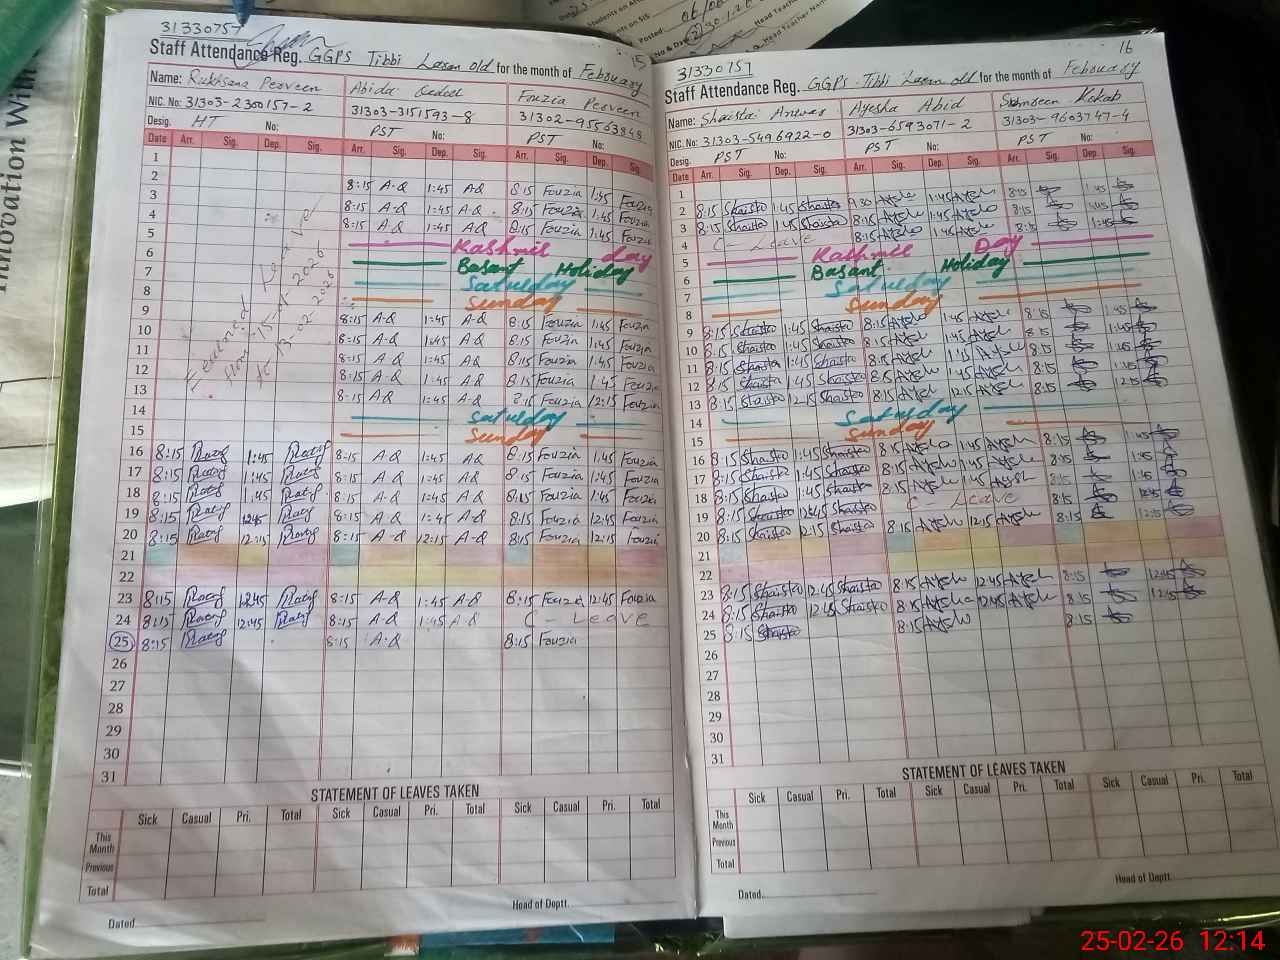 31330757
Staff Attendance Reg. GGPS Tibbi Laran old for the month of February
15
Name: Rukhsana Perveen Abida Fouzia Perveen
NIC. No: 31303-2300157-2 31303-3151593-8 31302-9556384
Desig. HT No: PST No: PST No:
Date Arr. Sig. Dep. Sig. Arr. Sig. Dep. Sig. Arr. Sig. Dep. Sig.
1
2 8:15 A-Q 1:45 AQ 8:15 Fouzia 1:45 Fouzia
3 8:15 A-Q 1:45 AQ 8:15 Fouzia 1:45 Fouzia
4 8:15 A-Q 1:45 AQ 8:15 Fouzia 1:45 Fouzia
5 Kashmir Day
6 Basant Holiday
7 Saturday
8 Sunday
9 8:15 A-Q 1:45 A-Q 8:15 Fouzia 1:45 Fouzia
10 8:15 A-Q 1:45 A-Q 8:15 Fouzia 1:45 Fouzia
11 8:15 A-Q 1:45 A-Q 8:15 Fouzia 1:45 Fouzia
12 8:15 A-Q 1:45 A-Q 8:15 Fouzia 1:45 Fouzia
13 8:15 A-Q 1:45 A-Q 8:15 Fouzia 12:15 Fouzia
14 Saturday
15 Sunday
16 8:15 1:45 8:15 A-Q 1:45 A-Q 8:15 Fouzia 1:45 Fouzia
17 8:15 1:45 8:15 A-Q 1:45 A-Q 8:15 Fouzia 1:45 Fouzia
18 8:15 1:45 8:15 A-Q 1:45 A-Q 8:15 Fouzia 1:45 Fouzia
19 8:15 12:45 8:15 A-Q 1:45 A-Q 8:15 Fouzia 12:45 Fouzia
20 8:15 12:15 8:15 A-Q 12:15 A-Q 8:15 Fouzia 12:15 Fouzia
21
22
23 8:15 12:45 8:15 A-Q 1:45 A-Q 8:15 Fouzia 12:45 Fouzia
24 8:15 12:45 8:15 A-Q 1:45 A-Q C - Leave
25 8:15 8:15 A-Q 8:15 Fouzia
26
27
28
29
30
31
STATEMENT OF LEAVES TAKEN
Sick Casual Pri. Total Sick Casual Pri. Total
This Month
Previous
Total
Dated
Head of Deptt.
16
31330757
Staff Attendance Reg. GGPS Tibbi Laran old for the month of February
Name: Shaista Anwar Ayesha Abid Kokab
NIC. No: 31303-5496922-0 31303-6593071-2 31303-9603747-4
Desig. PST No: PST No: PST No:
Date Arr. Sig. Dep. Sig. Arr. Sig. Dep. Sig. Arr. Sig. Dep. Sig.
1
2 8:15 Shaista 1:45 Shaista 9:30 Ayesha 1:45 Ayesha 8:15 1:45
3 8:15 Shaista 1:45 Shaista 8:15 Ayesha 1:45 Ayesha 8:15 1:45
4 C - Leave 8:15 Ayesha 1:45 Ayesha 8:15 1:45
5 Kashmir Day
6 Basant Holiday
7 Saturday
8 Sunday
9 8:15 Shaista 1:45 Shaista 8:15 Ayesha 1:45 Ayesha 8:15 1:45
10 8:15 Shaista 1:45 Shaista 8:15 Ayesha 1:45 Ayesha 8:15 1:45
11 8:15 Shaista 1:45 Shaista 8:15 Ayesha 1:45 Ayesha 8:15 1:45
12 8:15 Shaista 1:45 Shaista 8:15 Ayesha 1:45 Ayesha 8:15 1:45
13 8:15 Shaista 12:15 Shaista 8:15 Ayesha 12:15 Ayesha 8:15 12:15
14 Saturday
15 Sunday
16 8:15 Shaista 1:45 Shaista 8:15 Ayesha 1:45 Ayesha 8:15 1:45
17 8:15 Shaista 1:45 Shaista 8:15 Ayesha 1:45 Ayesha 8:15 1:45
18 8:15 Shaista 1:45 Shaista 8:15 Ayesha 1:45 Ayesha 8:15 1:45
19 8:15 Shaista 12:45 Shaista C - Leave 8:15 12:45
20 8:15 Shaista 12:15 Shaista 8:15 Ayesha 12:15 Ayesha 8:15 12:15
21
22
23 8:15 Shaista 12:45 Shaista 8:15 Ayesha 12:45 Ayesha 8:15 12:45
24 8:15 Shaista 12:45 Shaista 8:15 Ayesha 12:45 Ayesha 8:15 12:45
25 8:15 Shaista 8:15 Ayesha 8:15
26
27
28
29
30
31
STATEMENT OF LEAVES TAKEN
Sick Casual Pri. Total Sick Casual Pri. Total Sick Casual Pri. Total
This Month
Previous
Total
Dated
Head of Deptt.
25-02-26 12:14